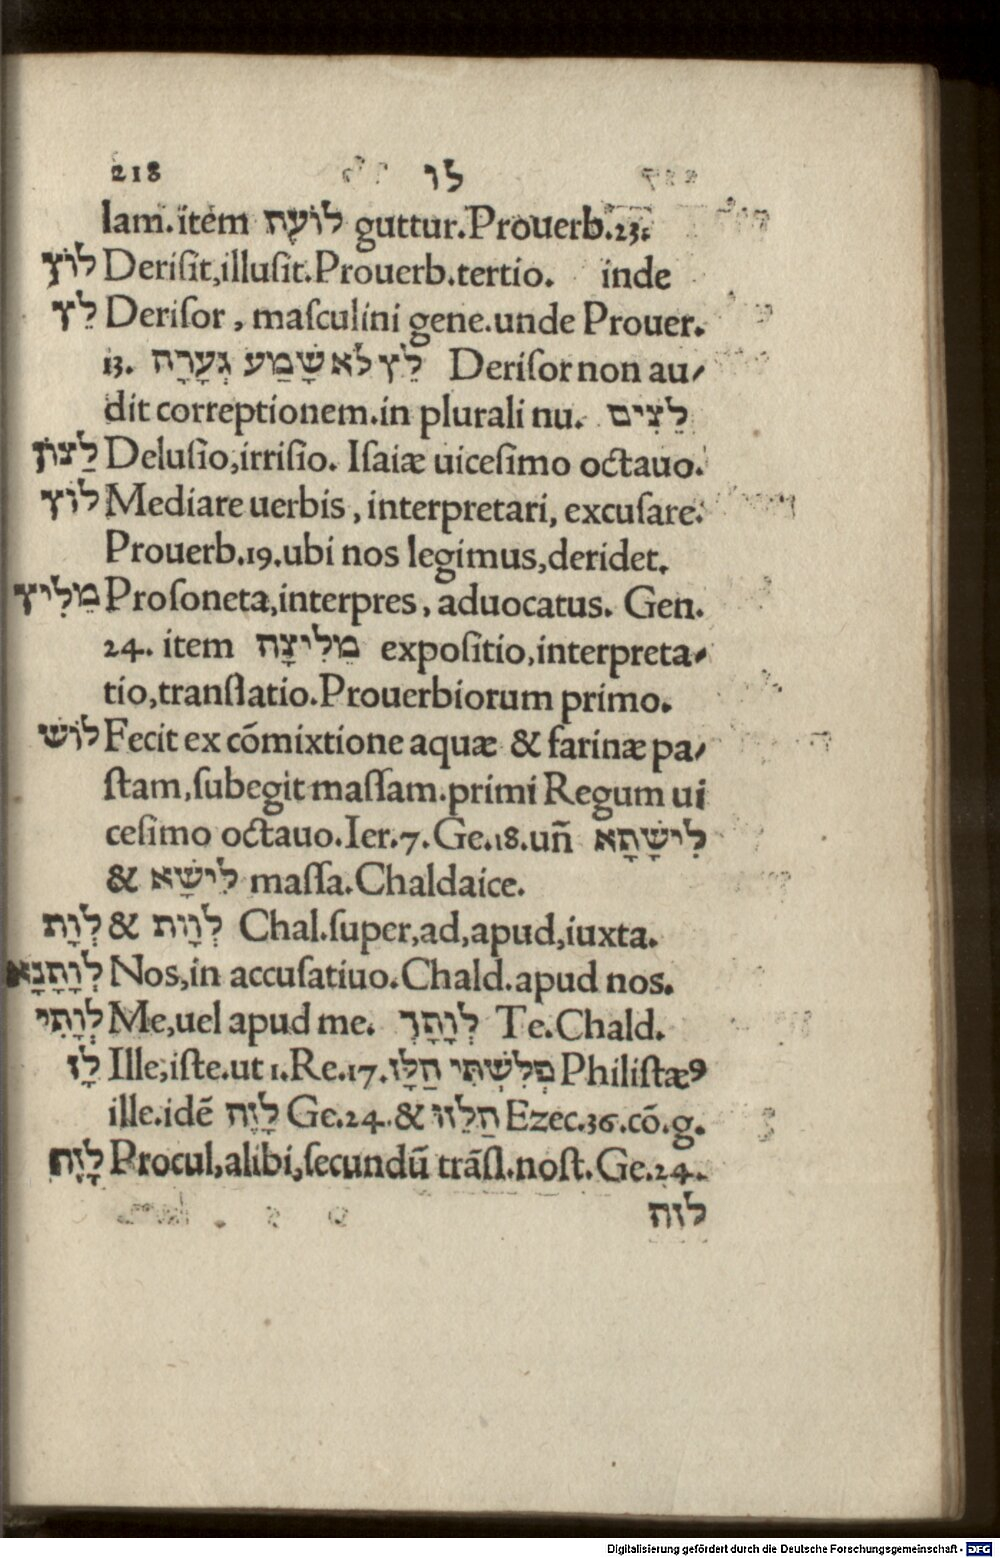 218 לו
lam. item לוֹעָה guttur. Prouerb. 23.
לוֹץ Deriſit, illuſit. Prouerb. tertio. inde
לֵץ Deriſor, maſculini gene. unde Prouer.
13. לֵץ לא שָׁמַע גְּעָרָה Deriſor non au⸗
dit correptionem. in plurali nu. לֵצִים
לַצוֹן Deluſio, irriſio. Iſaiæ uiceſimo octauo.
לוֹץ Mediare uerbis, interpretari, excuſare.
Prouerb. 19. ubi nos legimus, deridet.
מֵלִיץ Proſoneta, interpres, aduocatus. Gen.
24. item מֵלִיצָה expoſitio, interpreta⸗
tio, tranſlatio. Prouerbiorum primo.
לוֹשׁ Fecit ex cõmixtione aquæ & farinæ pa⸗
ſtam, ſubegit maſſam. primi Regum ui
ceſimo octauo. Ier. 7. Ge. 18. uñ לִישָׁתָא
& לִישָׁא maſſa. Chaldaice.
לְוָת & לְוָות Chal. ſuper, ad, apud, iuxta.
לְוָתָנָא Nos, in accuſatiuo. Chald. apud nos.
לְוָתִי Me, uel apud me. לְוָתָךְ Te. Chald.
לָז Ille, iſte. ut 1. Re. 17. פְלִשְׁתִּי הַלָּז Philiſtæꝰ
ille. idẽ לָזֶה Ge. 24. & הַלֵזוּ Ezec. 36. cõ. g.
לָזֶה Procul, alibi, ſecundũ trãſl. noſt. Ge. 24.
לזה
Digitalisierung gefördert durch die Deutsche Forschungsgemeinschaft - DFG